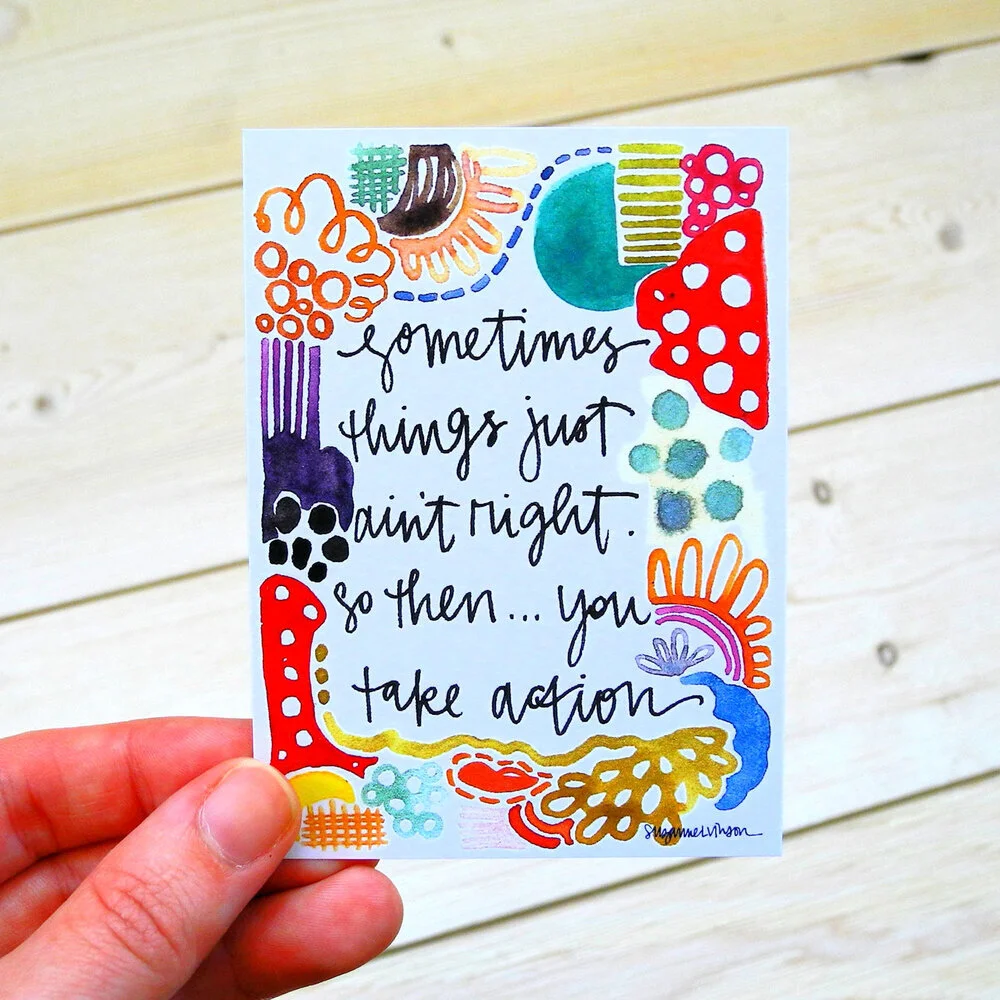 sometimes
things just
ain't right.
so then... you
take action
SuzanneVinson